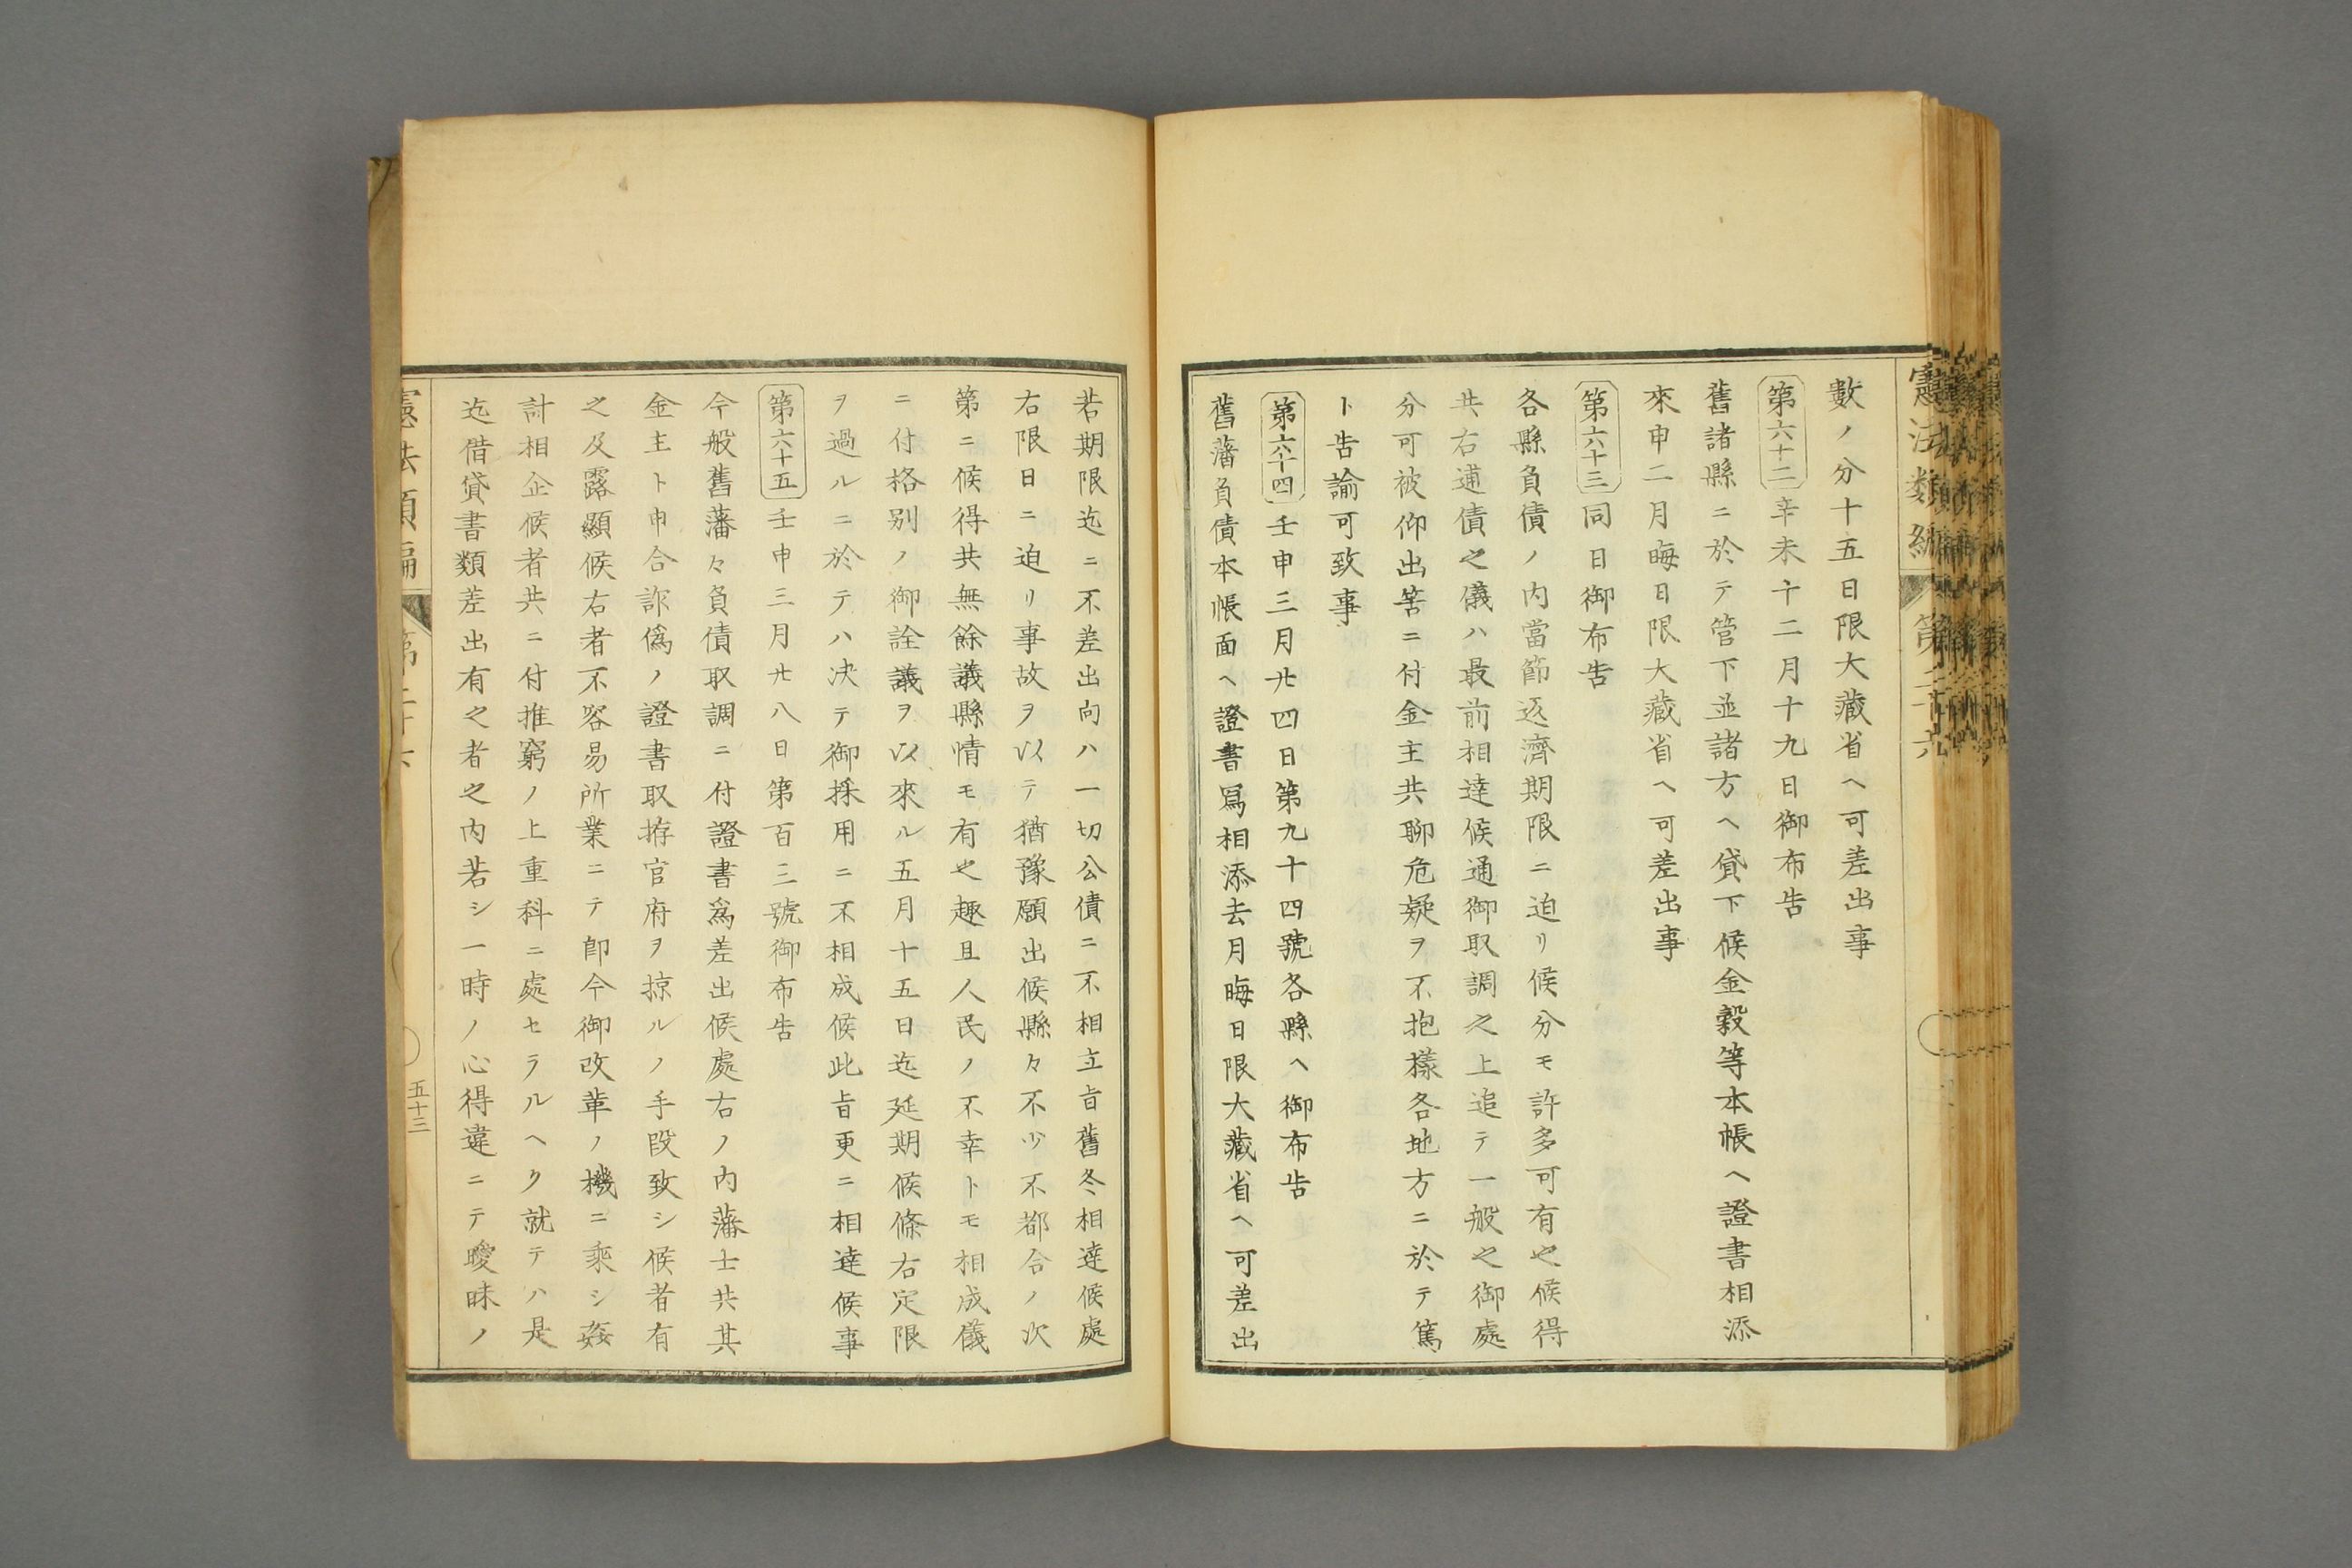 數ノ分十五日限大藏省ヘ可差出事
第六十二 辛未十二月十九日御布告
舊諸縣ニ於テ管下並諸方ヘ貸下候金穀等本帳ヘ證書相添
來申二月晦日限大藏省ヘ可差出事
第六十三 同日御布告
各縣負債ノ内當節返濟期限ニ迫リ候分モ許多可有之候得
共右逋債之儀ハ最前相達候通御取調之上追テ一般之御處
分可被仰出筈ニ付金主共聊危疑ヲ不抱樣各地方ニ於テ篤
ト告諭可致事
第六十四 壬申三月廿四日第九十四號各縣ヘ御布告
舊藩負債本帳面ヘ證書寫相添去月晦日限大藏省ヘ可差出
若期限迄ニ不差出向ハ一切公債ニ不相立旨舊冬相達候處
右限日ニ迫リ事故ヲ以テ猶豫願出候縣々不少不都合ノ次
第ニ候得共無餘議縣情モ有之趣且人民ノ不幸トモ相成儀
ニ付格別ノ御詮議ヲ以來ル五月十五日迄延期候條右定限
ヲ過ルニ於テハ决テ御採用ニ不相成候此旨更ニ相達候事
第六十五 壬申三月廿八日第百三號御布告
今般舊藩々負債取調ニ付證書爲差出候處右ノ内藩士共其
金主ト申合詐僞ノ證書取拵官府ヲ掠ルノ手段致シ候者有
之及露顯候右者不容易所業ニテ即今御改革ノ機ニ乘シ姦
計相企候者共ニ付推窮ノ上重科ニ處セラルヘク就テハ是
迄借貸書類差出有之者之内若シ一時ノ心得違ニテ曖昧ノ
憲法類編 第二十六
五十三